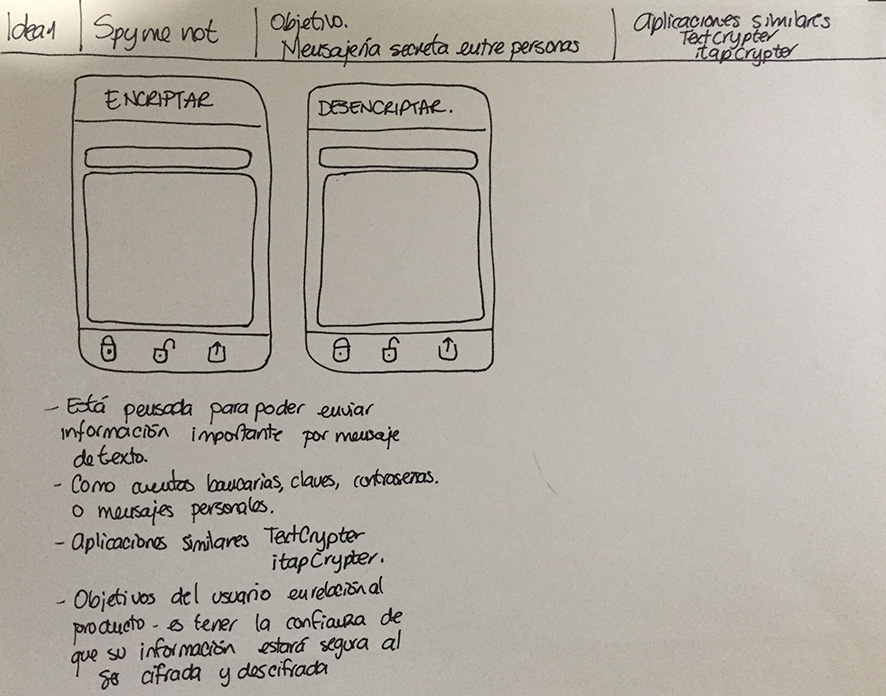 Idea 1
Spy me not
Objetivo.
Mensajería secreta entre personas
Aplicaciones similares
TextCrypter
itapCrypter
ENCRIPTAR
DESENCRIPTAR.
- Está pensada para poder enviar
información importante por mensaje
de texto.
- Como cuentas bancarias, claves, contraseñas.
o mensajes personales.
- Aplicaciones similares TextCrypter
itapCrypter.
- Objetivos del usuario en relación al
producto - es tener la confianza de
que su información estará segura al
ser cifrada y descifrada